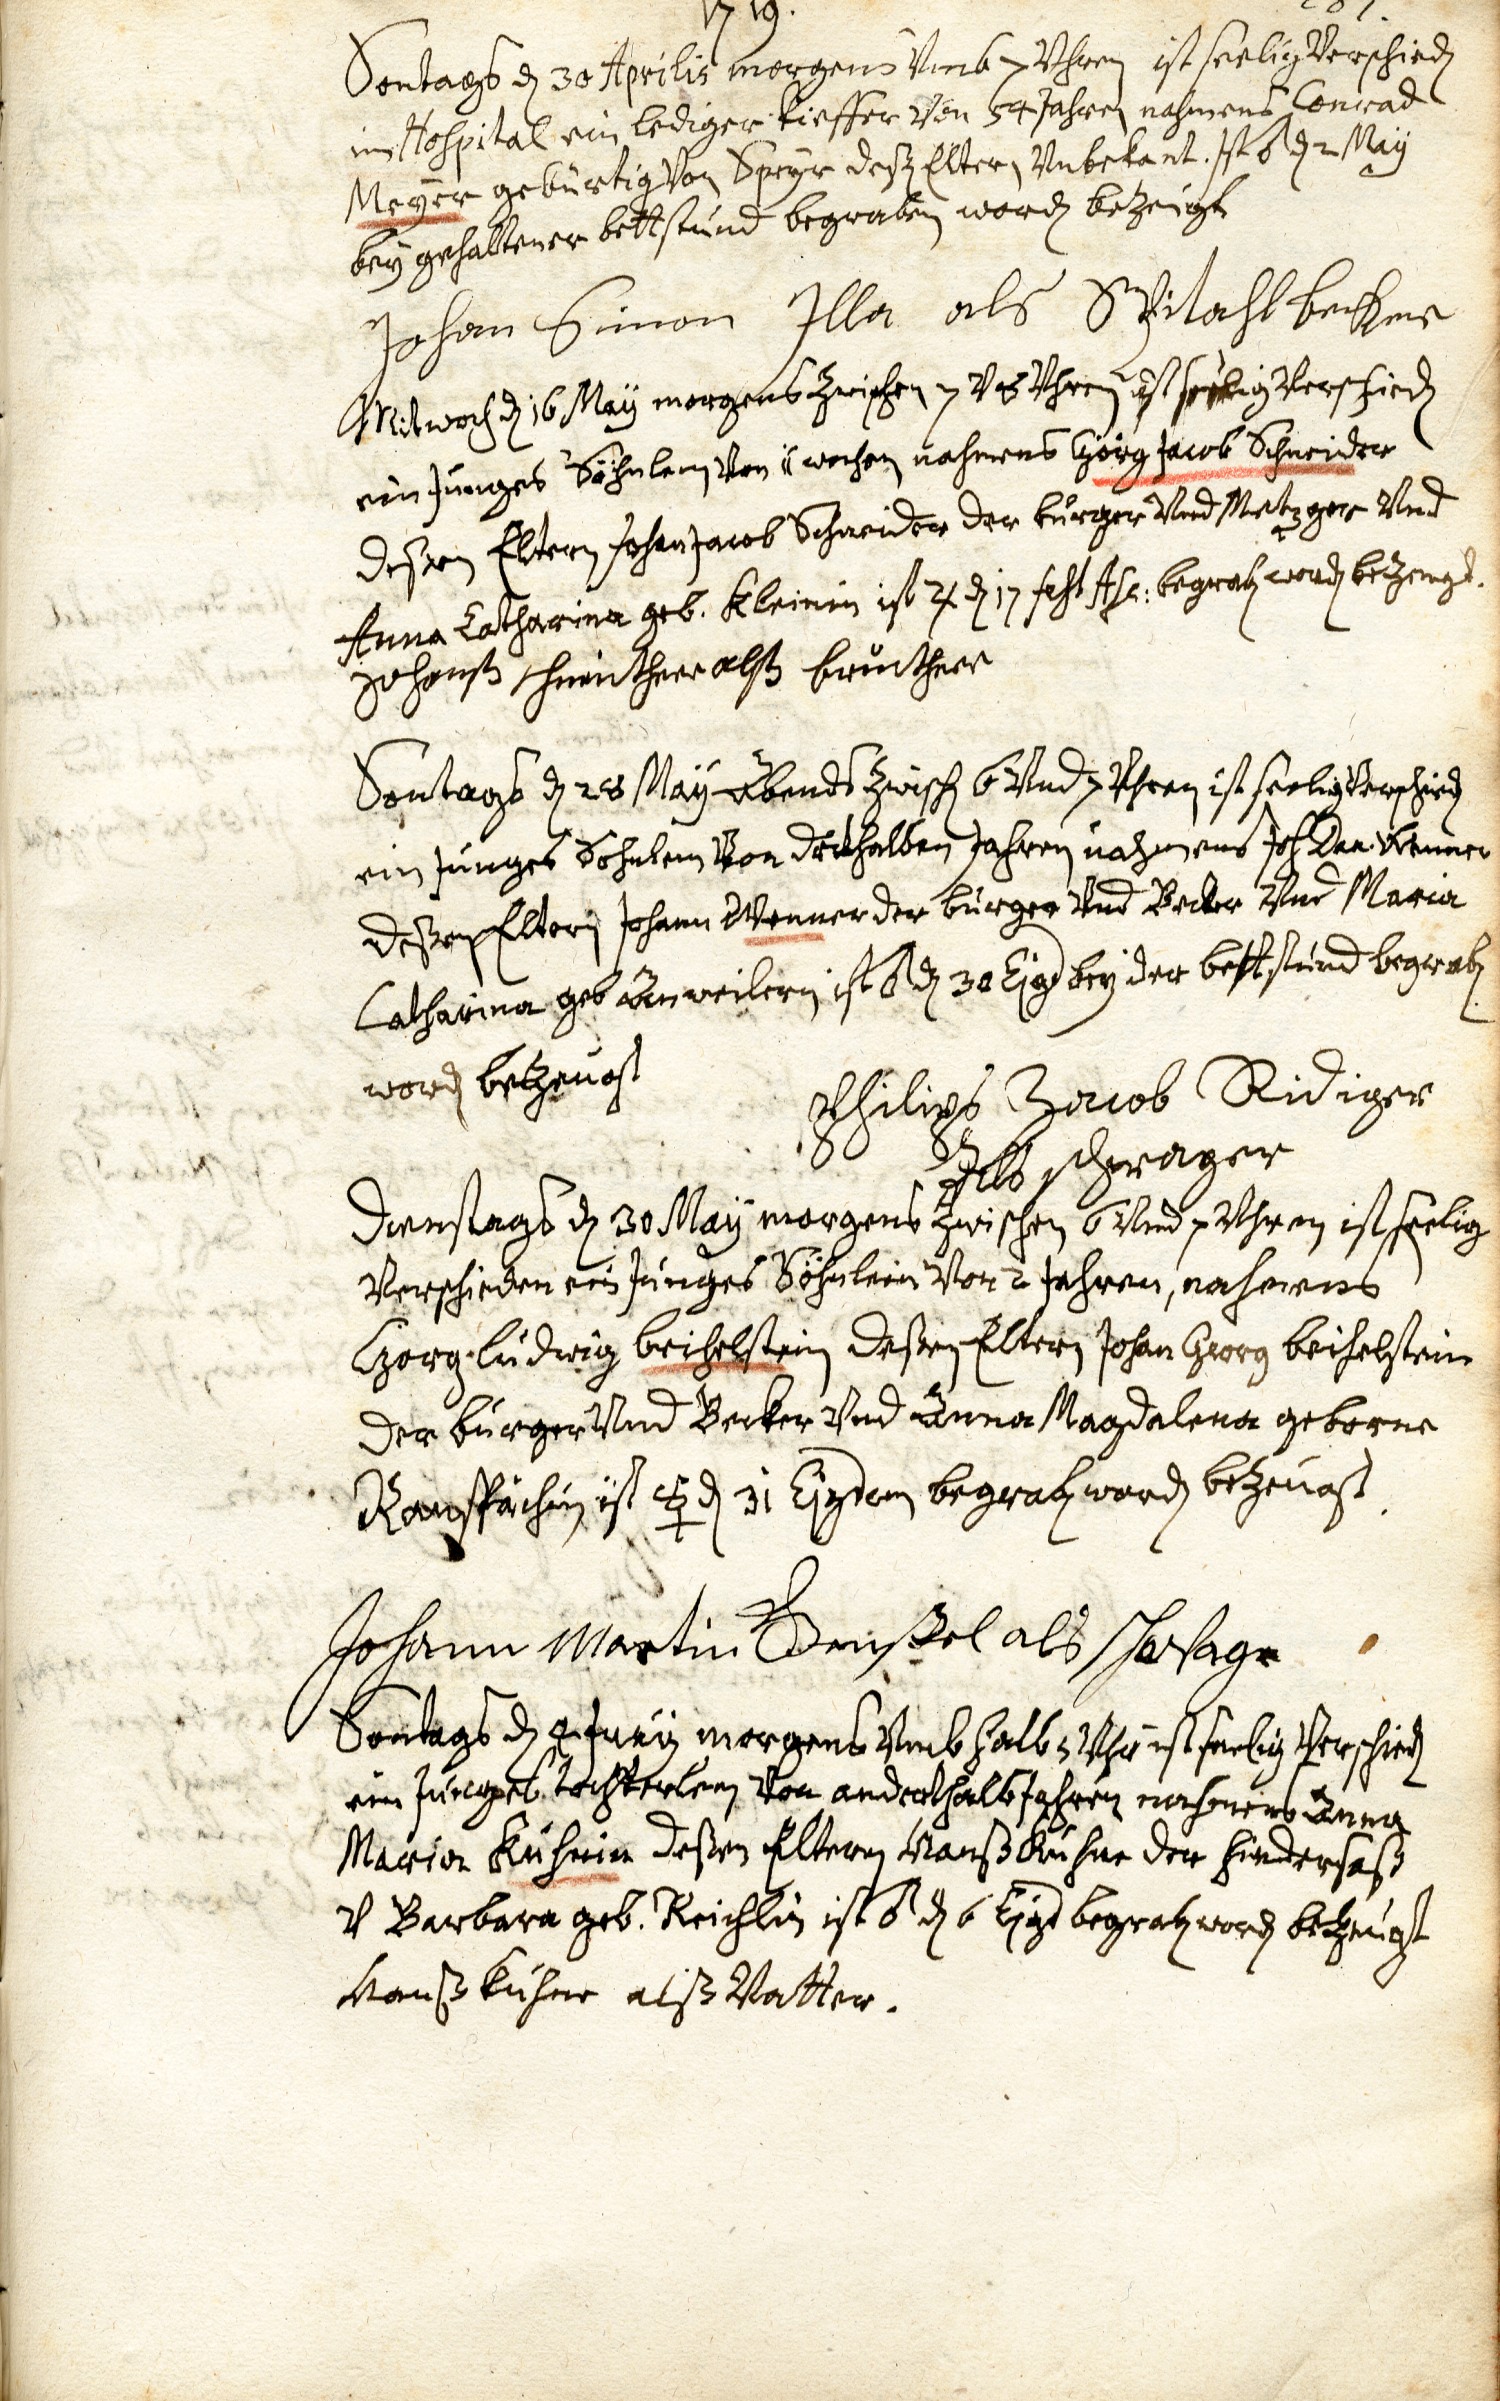 1719.
Sontags d 30 Aprilis morgens Vmb 7 Vhren ist seelig Verschied
im Hospital ein lediger Kieffer Von 54 Jahren nahmens Conrad
Meyer gebürtig Von Speyr deß Eltern Vnbekant. Ist ♂ d 2 May
bey gehaltener bettstund begraben word betzeugt
Johan Simon Illa als Spitahl
Mitwoch d 16 May morgens zwischen 7 V 8 Vhren ist seelig Verschied
ein Junges Söhnlein Von 11 wochen nahmens Georg Jacob Schneider
deßen Eltern Johan Jacob Schneider der burger Vnd Metzger Vnd
Anna Catharina geb. Kleinin ist ♃ d 17 begrab word betzeugt.
Johanß alß
Sontags d 28 May Abends zwisch 6 Vnd 7 Vhren ist seelig Verschied
ein Junges Söhnlein Von Jahren nahmens Joh Wenner
deßen Eltern Johann Wenner der burger Vnd Becker Vnd Maria
Catharina geb Anweilerin ist ♂ d 30 Ejusd bey der bettstund begrab
word betzeugt
Philips Jacob Ridiger
Als
Dienstags d 30 May morgens zwischen 6 Vnd 7 Vhren ist seelig
Verschieden ein Junges Söhnlein Von 2 Jahren, nahmens
Georg Ludwig beihelstein deßen Eltern Johan Georg beihelstein
der burger Vnd Becker Vnd Anna Magdalena geborne
ist ☿ d 31 Ejusdem begrab word betzeugt.
Johann Martin als
Sontags d 4 Juny morgens Vmb halb 5 Vhr ist seelig Verschied
ein Junges töchterlein Von anderthalb Jahren nahmens Anna
Maria Kühnin deßen Eltern Hanß Kühne der hindersaß
V Barbara geb. Reichlin ist ♂ d 6 Ejusd begrab word betzeugt
Hanß Kühne alß Vatter.